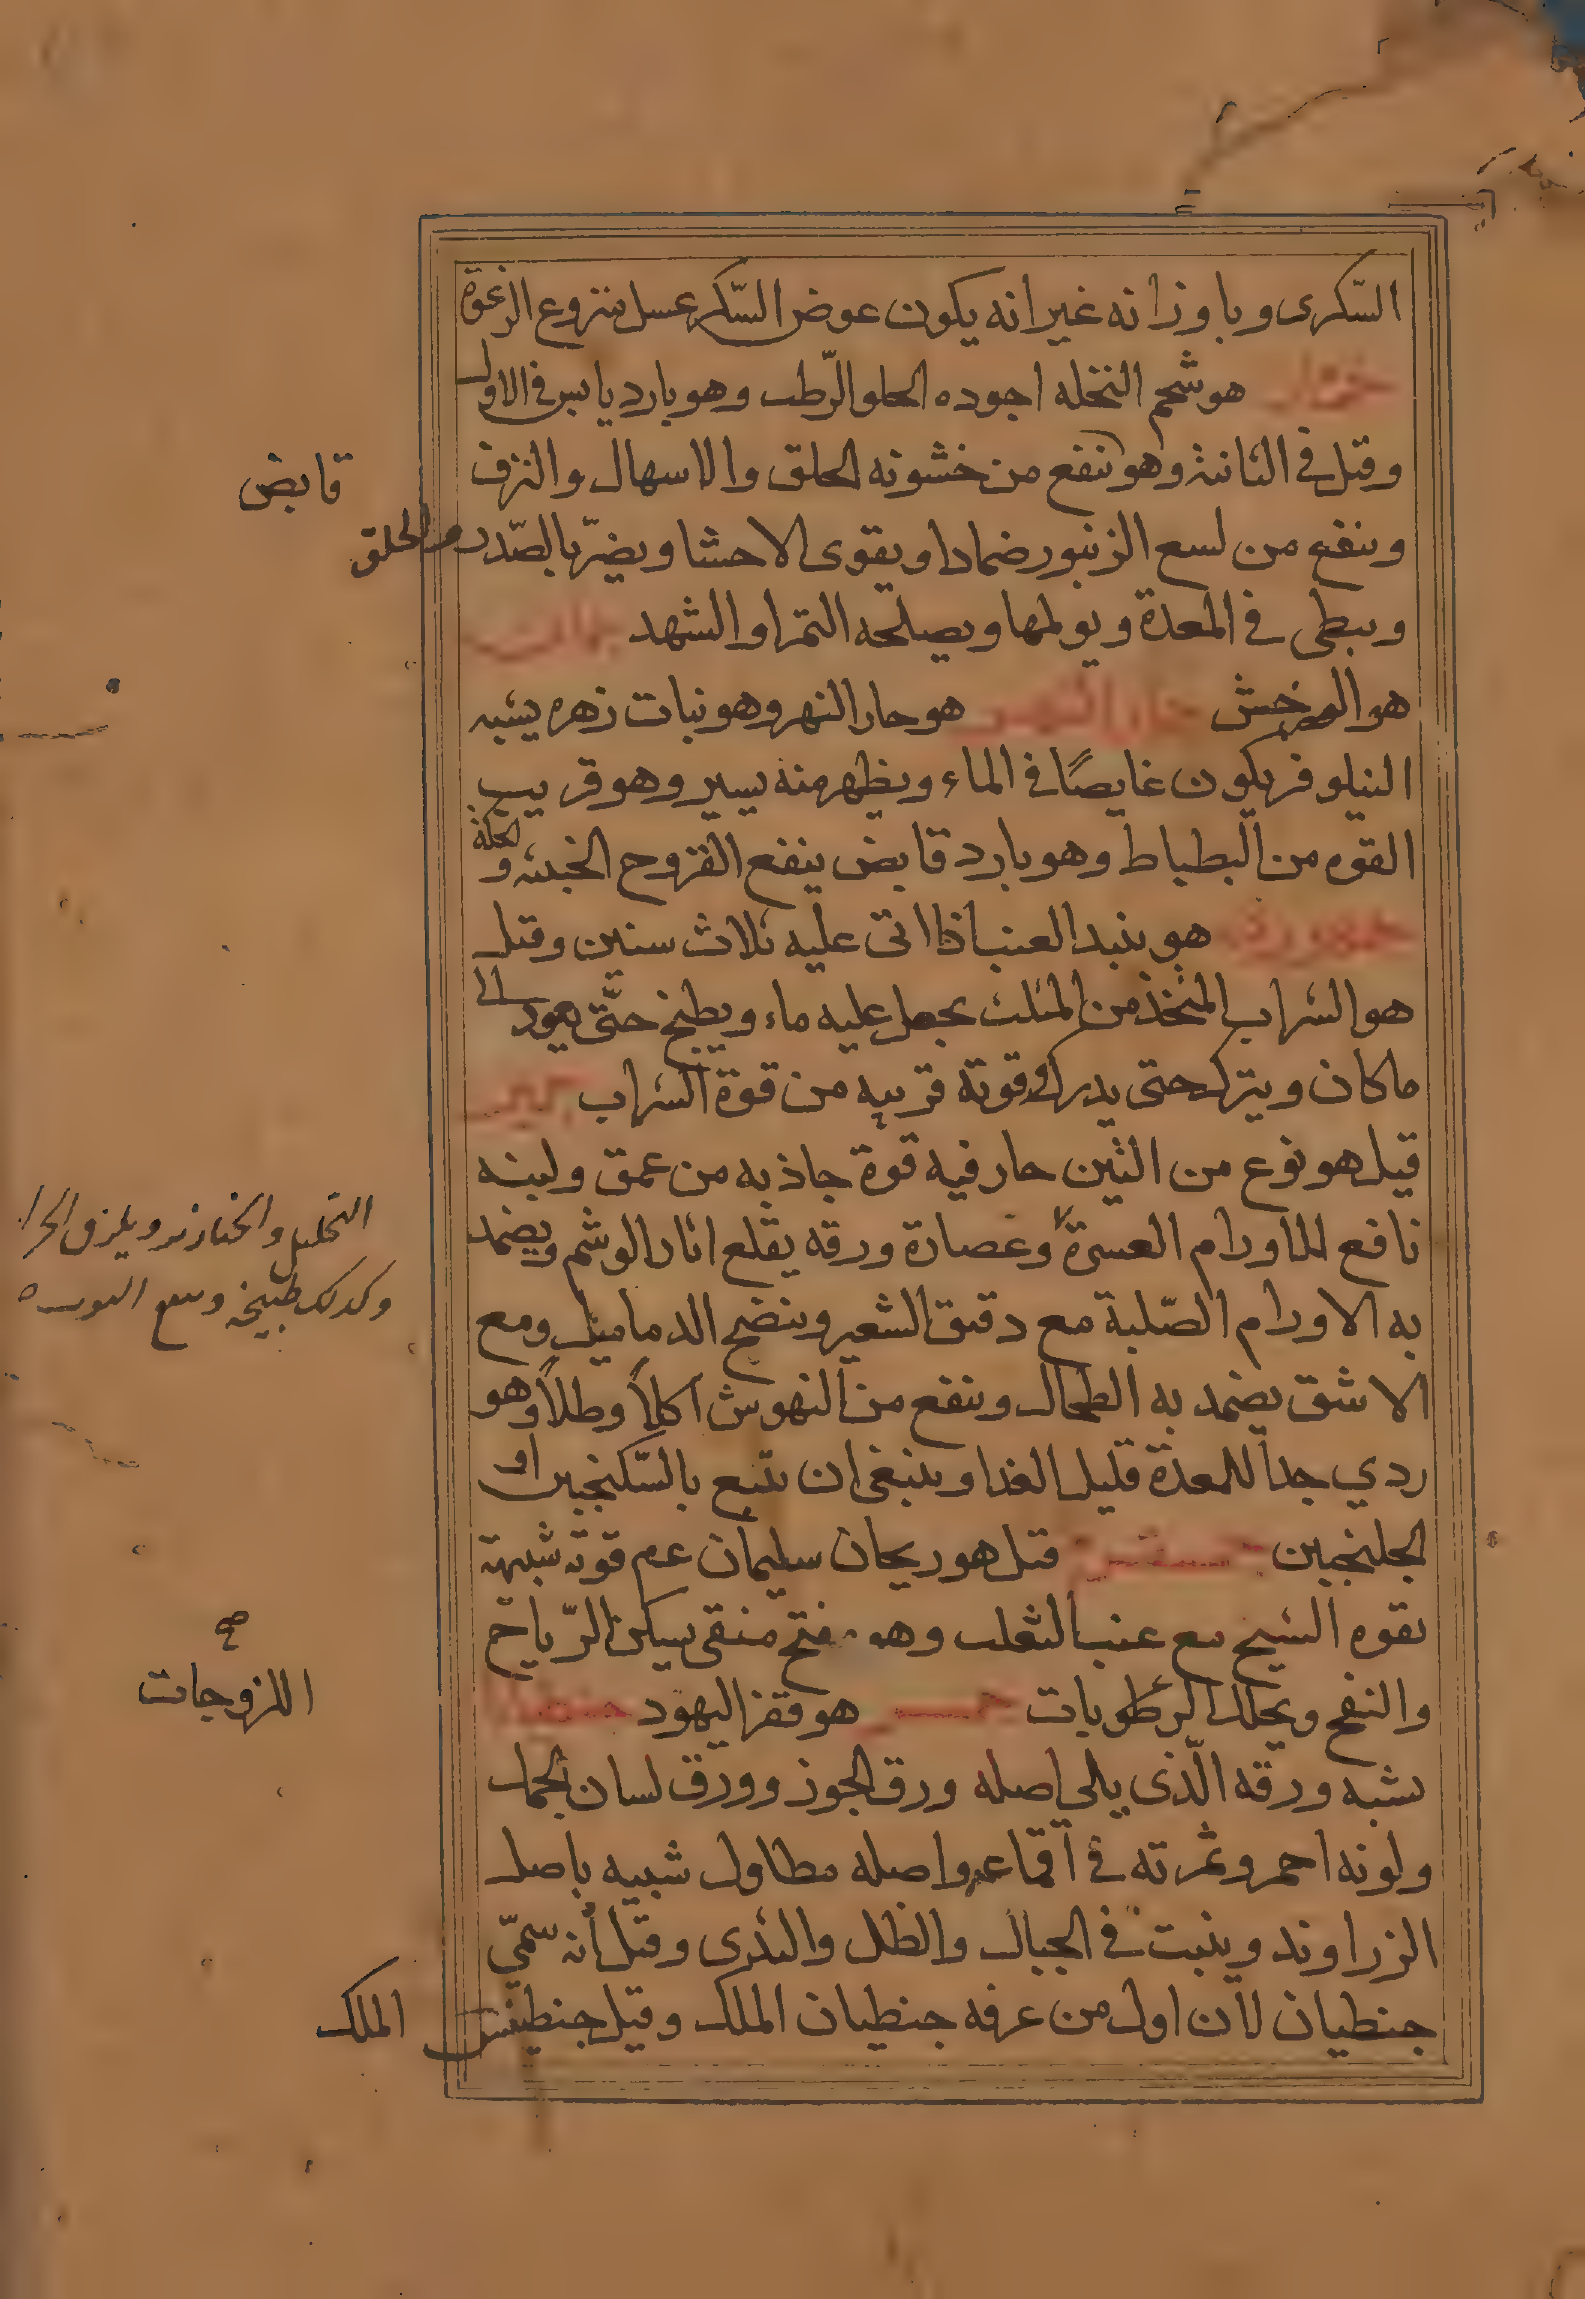 السّكرى وباوزانه غير انه يكون عوض السّكر عسل منزوع الرغوة
جمار هو شحم النخله اجوده الحلو الرّطب وهو بارد يابس فى الاولى
وقيل فى الثانية وهو ينفع من خشونه الحلق والاسهال والنزف
قابض
وينفع من لسع الزنبور ضمادا ويقوى الاحشا ويضرّ بالصّدر والحلق
ويبطى فى المعدة ويولمها ويصلحه التمر او الشهد
هو جار النهر وهو نبات زهره يشبه
النيلوفر يكون غايصًا فى الماء ويظهر منه يسير وهو قريب
القوه من البطباط وهو بارد قابض ينفع القروح الخبيثه والحكة
جمهورى هو نبيد العنب اذا اتى عليه ثلاث سنين وقيل
هو الشراب المتخذ من المثلث يجعل عليه ماء ويطبخ حتّى يعود الى
ما كان ويترك حتى يدرك وقوته قريبه من قوة الشراب جميز
قيل هو نوع من التين حار فيه قوة جاذبه من عمق ولبنه
نافع للاورام العسرة وعصارة ورقه يقلع اثار الوشم ويضمد
التحليل والخنازير ويلزق الجرا
وكدلك طبيخه
به الاورام الصّلبة مع دقيق الشعير وينضج الدماميل ومع
الاشق يضمد به الطحال وينفع من النهوش اكلاً وطلاً وهو
ردي جدا للمعدة قليل الغدا وينبغى ان يتبع بالسّكنجبين او
الجلنجبين قيل هو ريحان سليمان عم قوته شبيهة
بقوه الشيح مع عنب الثعلب وهو مفتح منقى يسكن الرّياح
والنفخ ويحلل الرطوبات هو قفر اليهود جنطيانا
صح
اللزوجات
يشبه ورقه الّذى يلى اصله ورق الجوز وورق لسان الحمل
ولونه احمر وثمرته فى اقماعه واصله مطاول شبيه باصل
الزراوند وينبت فى الجبال والظل والندى وقيل انه سمّي
جنطيان لان اول من عرفه جنطيان الملك وقيل جنطينس الملك